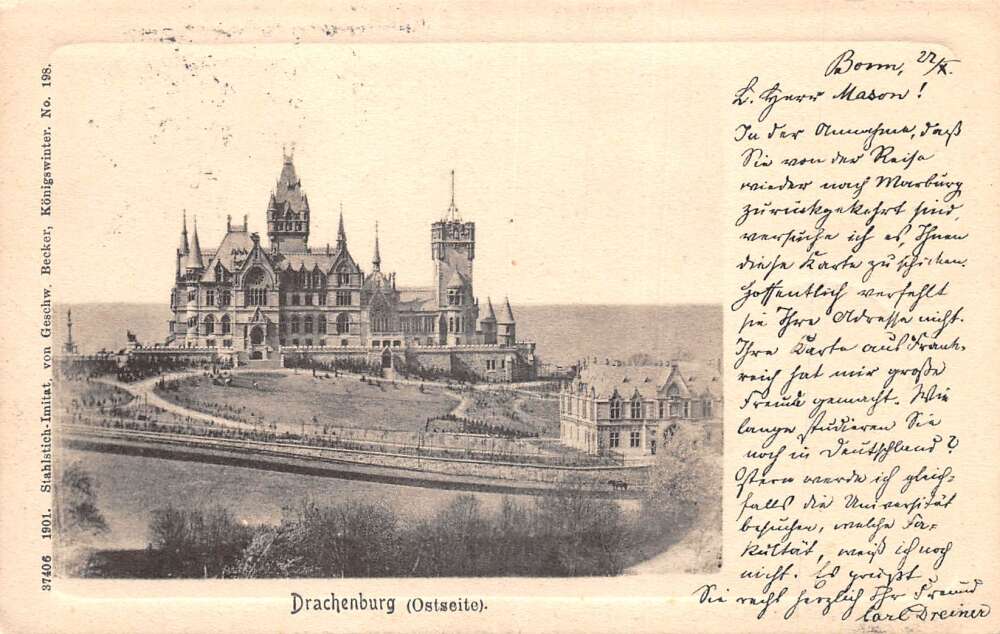 37406 1901. Stahlstich-Imitat. von Geschw. Becker, Königswinter. No. 198.
Drachenburg (Ostseite).
Bonn, 22/X.
L. Herr Mason!
In der Annahme, daß
Sie von der Reise
wieder nach Marburg
zurückgekehrt sind,
versuche ich es, Ihnen
diese Karte zu schicken.
Hoffentlich verfehlt
sie Ihre Adresse nicht.
Ihre Karte aus Frank-
reich hat mir große
Freude gemacht. Wie
lange studieren Sie
noch in Deutschland?
Ostern werde ich gleich-
falls die Universität
besuchen, welche Fa-
kultät, weiß ich noch
nicht. Es grüßt
Sie recht herzlich Ihr Freund
Carl Dreiner